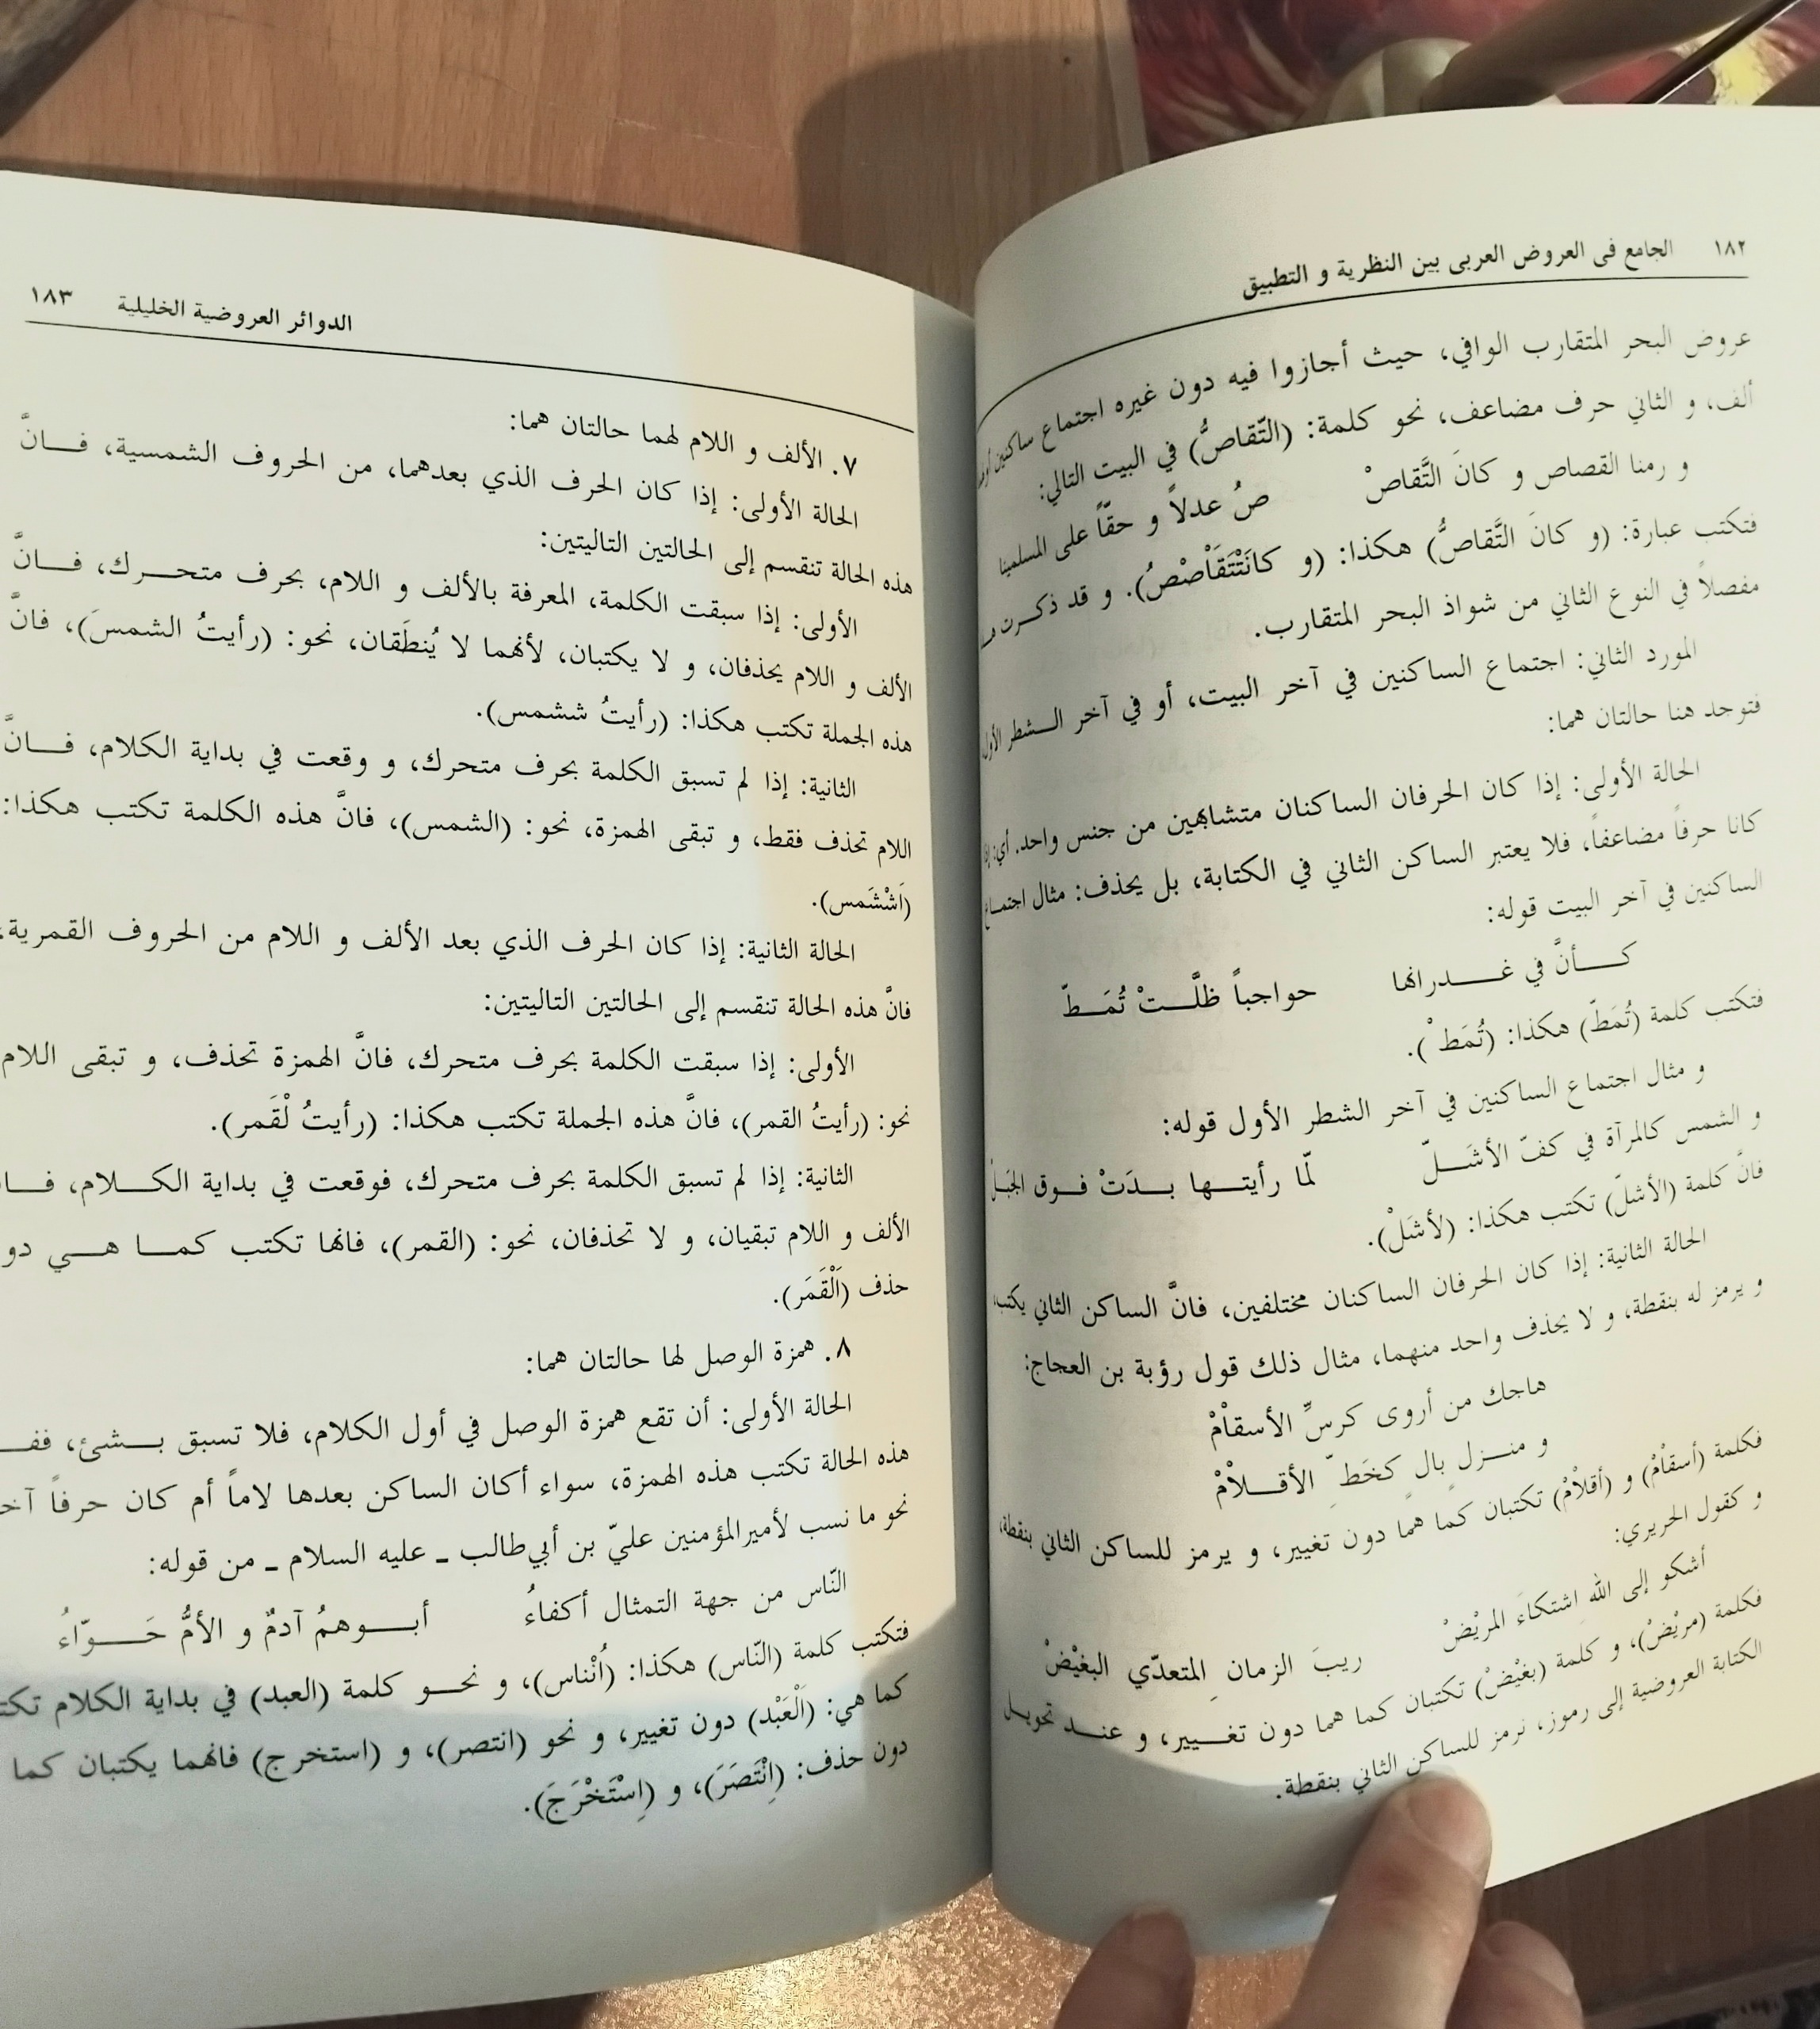 ١٨٢ الجامع فى العروض العربى بين النظرية و التطبيق
عروض البحر المتقارب الوافي، حيث أجازوا فيه دون غيره اجتماع ساكنين
ألف، و الثاني حرف مضاعف، نحو كلمة: (التّقاصُّ) في البيت التالي:
و رمنا القصاص و كانَ التَّقاصْ صُ عدلاً و حقّاً على المسلمينا
فتكتب عبارة: (و كانَ التَّقاصُّ) هكذا: (و كانَتْتَقَاْصْصُ). و قد ذكرت
مفصلاً في النوع الثاني من شواذ البحر المتقارب.
المورد الثاني: اجتماع الساكنين في آخر البيت، أو في آخر الـشطر الأول
فتوجد هنا حالتان هما:
الحالة الأولى: إذا كان الحرفان الساكنان متشابهين من جنس واحد. أي:
كانا حرفاً مضاعفاً، فلا يعتبر الساكن الثاني في الكتابة، بل يحذف: مثال اجتماع
الساكنين في آخر البيت قوله:
كـأنَّ في غـدرانها حواجباً ظلَّـتْ تُمَـطّ
فتكتب كلمة (تُمَطّ) هكذا: (تُمَطْ).
و مثال اجتماع الساكنين في آخر الشطر الأول قوله:
و الشمس كالمرآة في كفّ الأشَـلّ لمّا رأيتـها بـدَتْ فـوق الجَبَـلْ
فانَّ كلمة (الأشلّ) تكتب هكذا: (لأشَلْ).
الحالة الثانية: إذا كان الحرفان الساكنان مختلفين، فانَّ الساكن الثاني يكتب،
و يرمز له بنقطة، و لا يحذف واحد منهما، مثال ذلك قول رؤبة بن العجاج:
هاجك من أروى كرسِّ الأسقاْمْ
و منـزلٍ بالٍ كخَطِّ الأقـلاْمْ
فكلمة (أسقاْمْ) و (أقلاْمْ) تكتبان كما هما دون تغيير، و يرمز للساكن الثاني بنقطة،
و كقول الحريري:
أشكو إلى اللهِ اشتكاءَ المريْضْ ريبَ الزمانِ المتعدّي البغيْضْ
فكلمة (مريْضْ)، و كلمة (بغيْضْ) تكتبان كما هما دون تغـيير، و عنـد تحويـل
الكتابة العروضية إلى رموز، نرمز للساكن الثاني بنقطة.
الدوائر العروضية الخليلية ١٨٣
٧. الألف و اللام لهما حالتان هما:
الحالة الأولى: إذا كان الحرف الذي بعدهما، من الحروف الشمسية، فـانَّ
هذه الحالة تنقسم إلى الحالتين التاليتين:
الأولى: إذا سبقت الكلمة، المعرفة بالألف و اللام، بحرف متحـرك، فـانَّ
الألف و اللام يحذفان، و لا يكتبان، لأنهما لا يُنطَقان، نحو: (رأيتُ الشمسَ)، فانَّ
هذه الجملة تكتب هكذا: (رأيتُ ششمس).
الثانية: إذا لم تسبق الكلمة بحرف متحرك، و وقعت في بداية الكلام، فـانَّ
اللام تحذف فقط، و تبقى الهمزة، نحو: (الشمس)، فانَّ هذه الكلمة تكتب هكذا:
(اَشْشَمس).
الحالة الثانية: إذا كان الحرف الذي بعد الألف و اللام من الحروف القمرية،
فانَّ هذه الحالة تنقسم إلى الحالتين التاليتين:
الأولى: إذا سبقت الكلمة بحرف متحرك، فانَّ الهمزة تحذف، و تبقى اللام
نحو: (رأيتُ القمر)، فانَّ هذه الجملة تكتب هكذا: (رأيتُ لْقَمر).
الثانية: إذا لم تسبق الكلمة بحرف متحرك، فوقعت في بداية الكـلام،
الألف و اللام تبقيان، و لا تحذفان، نحو: (القمر)، فانها تكتب كمـا هـي
حذف (اَلْقَمَر).
٨. همزة الوصل لها حالتان هما:
الحالة الأولى: أن تقع همزة الوصل في أول الكلام، فلا تسبق بـشئ،
هذه الحالة تكتب هذه الهمزة، سواء أكان الساكن بعدها لاماً أم كان حرفاً
نحو ما نسب لأميرالمؤمنين عليّ بن أبي‌طالب ـ عليه السلام ـ من قوله:
النّاس من جهة التمثال أكفاءُ أبـوهمُ آدمٌ و الأمُّ حَـوّاءُ
فتكتب كلمة (النّاس) هكذا: (اُنْناس)، و نحـو كلمة (العبد) في بداية الكلام
كما هي: (اَلْعَبْد) دون تغيير، و نحو (انتصر)، و (استخرج) فانهما يكتبان كما
دون حذف: (اِنْتَصَرَ)، و (اِسْتَخْرَجَ).